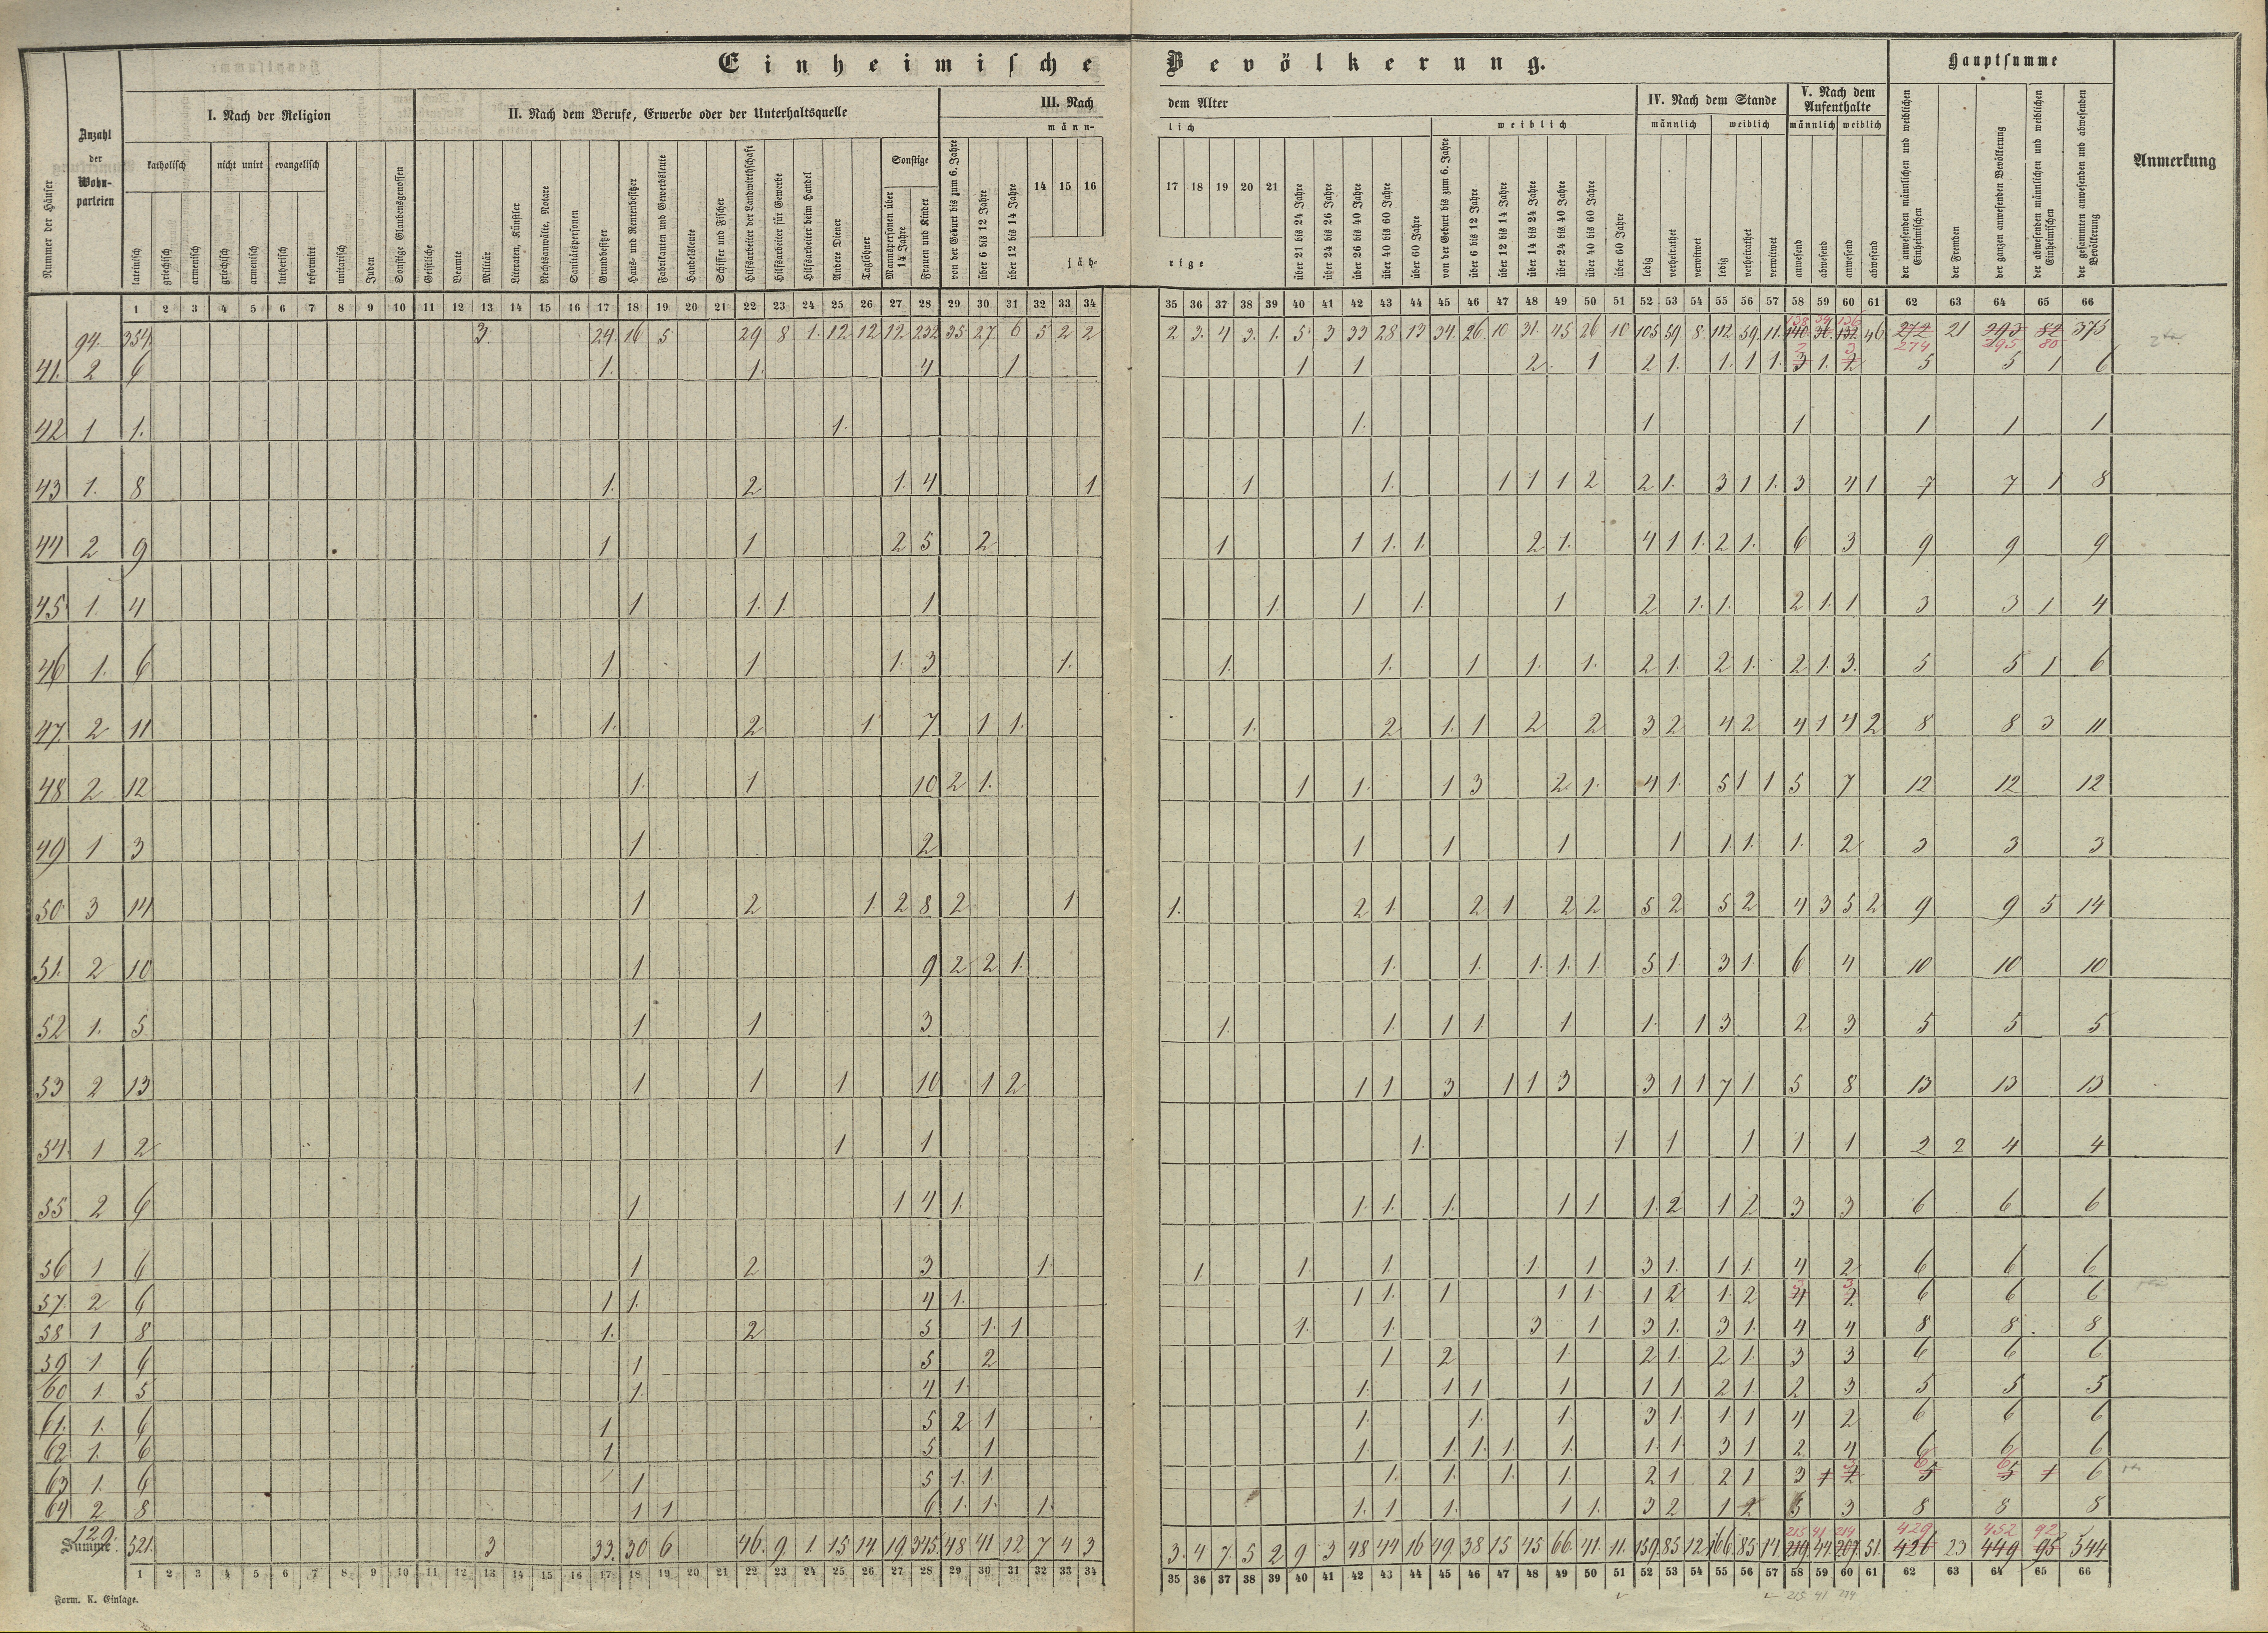 Einheimische Bevölkerung.
Hauptsumme
Nummer der Häuser
Anzahl der Wohnparteien
I. Nach der Religion
II. Nach dem Berufe, Erwerbe oder der Unterhaltsquelle
III. Nach dem Alter
IV. Nach dem Stande
V. Nach dem Aufenthalte
Anmerkung
katholisch
nicht unirt
evangelisch
Sonstige
männlich
weiblich
männlich weiblich
männlich weiblich
lateinisch
griechisch
armenisch
griechisch
armenisch
lutherisch
reformirt
unitarisch
Juden
Sonstige Glaubensgenossen
Geistliche
Beamte
Militär
Literaten, Künstler
Rechtsanwälte, Notare
Sanitätspersonen
Grundbesitzer
Haus- und Rentenbesitzer
Fabrikanten und Gewerbsleute
Handelsleute
Schiffer und Fischer
Hilfsarbeiter der Landwirthschaft
Hilfsarbeiter für Gewerbe
Hilfsarbeiter beim Handel
Andere Diener
Taglöhner
Mannspersonen über 14 Jahre
Frauen und Kinder
von der Geburt bis zum 6. Jahre
über 6 bis 12 Jahre
über 12 bis 14 Jahre
14 15 16
jäh-
17 18 19 20 21
rige
über 21 bis 24 Jahre
über 24 bis 26 Jahre
über 26 bis 40 Jahre
über 40 bis 60 Jahre
über 60 Jahre
von der Geburt bis zum 6. Jahre
über 6 bis 12 Jahre
über 12 bis 14 Jahre
über 14 bis 24 Jahre
über 24 bis 40 Jahre
über 40 bis 60 Jahre
über 60 Jahre
ledig
verheirathet
verwitwet
ledig
verheirathet
verwitwet
anwesend
abwesend
anwesend
abwesend
der anwesenden männlichen und weiblichen Einheimischen
der Fremden
der ganzen anwesenden Bevölkerung
der abwesenden männlichen und weiblichen Einheimischen
der gesammten anwesenden und abwesenden Bevölkerung
1 2 3 4 5 6 7 8 9 10 11 12 13 14 15 16 17 18 19 20 21 22 23 24 25 26 27 28 29 30 31 32 33 34 35 36 37 38 39 40 41 42 43 44 45 46 47 48 49 50 51 52 53 54 55 56 57 58 59 60 61 62 63 64 65 66
94. 354 3. 24. 16 5. 29 8 1. 12 12 12 232 35 27. 6 5 2 2 2 3. 4 3. 1. 5 3 33 28 13 34. 26. 10 31. 45 26 10 105 59 8. 112 59. 11. 46 272 21 293 82 375
138 34 136 274 295 80
41. 2 6 1. 1. 4 1 1 1 2 1 2 1. 1. 1 1. 3 1. 2 5 5 1 6
42 1 1. 1. 1. 1 1 1 1 1
43 1. 8 1. 2 1. 4 1 1 1. 1 1 1 2 2 1. 3 1 1. 3 4 1 7 7 1 8
44 2 9 1 1 2 5 2 1 1 1. 1. 2 1. 4 1 1. 2 1. 6 3 9 9 9
45 1. 4 1 1. 1. 1 1. 1 1. 1 2 1. 1. 2 1. 1 3 3 1 4
46 1. 6 1 1 1. 3 1. 1. 1. 1 1. 1. 2 1. 2 1. 2 1. 3. 5 5 1 6
47 2 11 1. 2 1. 7 1 1. 1. 2 1. 1 2 2 3 2 4 2 4 1 4 2 8 8 3 11
48 2 12 1. 1 10 2 1. 1 1. 1 3 2 1. 4 1. 5 1 1 5 7 12 12 12
49 1 3 1 2 1 1 1 1 1 1. 1. 2 3 3 3
50 3 14 1 2 1 2 8 2 1 1. 2 1 2 1 2 2 5 2 5 2 4 3 5 2 9 9 5 14
51. 2 10 1 9 2 2 1. 1. 1. 1. 1. 1. 5 1. 3 1. 6 4 10 10 10
52 1. 5 1 1 3 1. 1. 1 1. 1 1. 1 3 2 3 5 5 5
53 2 13 1 1 1 10 1 2 1 1 3 1 1 3 3 1 1 7 1. 5 8 13 13 13
54. 1 2 1 1 1. 1 1 1 1 1 2 2 4 4
55 2 6 1 1 4 1. 1. 1. 1. 1 1 1. 2 1 2 3 3 6 6 6
56 1 6 1 2 3 1 1 1 1. 1 1 3 1. 1 1. 4 2 6 6 6
57. 2 6 1 1. 4 1. 1 1. 1 1 1. 1 2 1. 2 4 2 6 6 6
58 1 8 1. 2 5 1. 1 1. 1. 3 1 3 1. 3 1. 4 4 8 8 8
59 1 6 1 5 2 1 2 1. 2 1. 2 1. 3 3 6 6 6
60 1. 5 1. 4 1. 1. 1 1 1 1 1 2 1 2 3 5 5 5
61. 1. 6 1 5 2 1 1. 1. 1. 3 1. 1. 1 4 2 6 6 6
62 1. 6 1 5 1 1. 1. 1. 1 1. 1. 1. 3 1 2 4 6 6 6
63 1. 6 1 5 1. 1. 1. 1. 1. 1. 2 1 2 1 3 1 2 5 5 1 6
64 2 8 1 1 6 1. 1. 1. 1. 1 1. 1 1. 3 2 1 2 5 3 8 8 8
129.
Summe. 521. 3 33. 30 6 46. 9. 1. 15 14. 19 345 48 41 12 7 4 3 3. 4 7. 5 2 9 3 48 44 16 49. 38 15 45 66. 41. 11. 159. 85 12. 166. 85 14. 219 44. 207 51. 426 23 449 95 544
215 41 214 429 452 92
1 2 3 4 5 6 7 8 9 10 11 12 13 14 15 16 17 18 19 20 21 22 23 24 25 26 27 28 29 30 31 32 33 34 35 36 37 38 39 40 41 42 43 44 45 46 47 48 49 50 51 52 53 54 55 56 57 58 59 60 61 62 63 64 65 66
215 41 214
Form. K. Einlage.